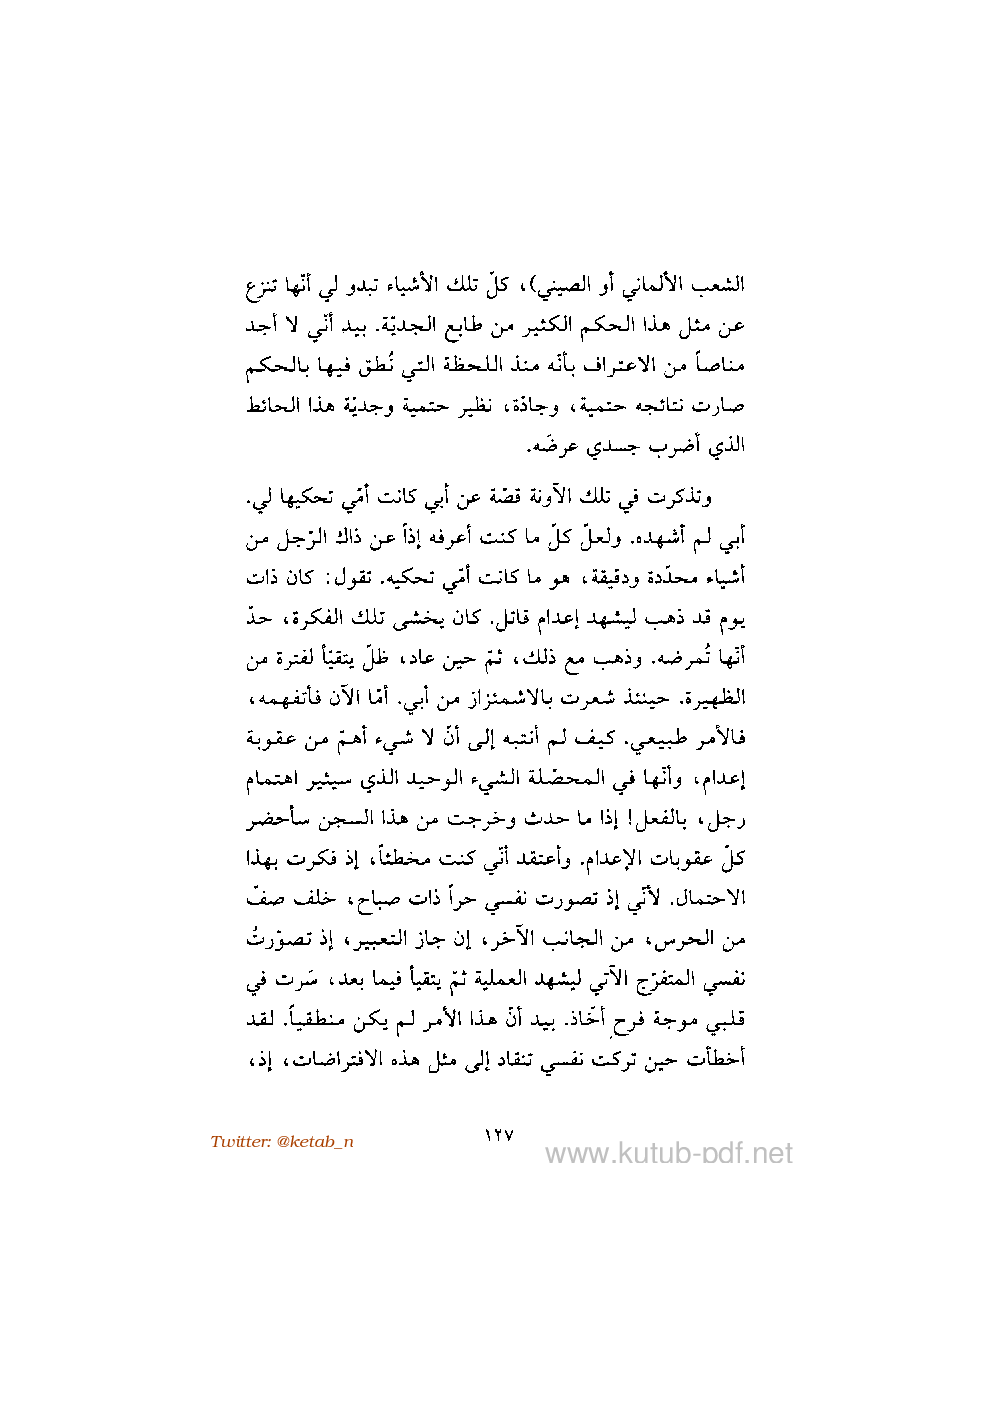 الشعب الألماني أو الصيني)، كلّ تلك الأشياء تبدو لي أنّها تنزع
عن مثل هذا الحكم الكثير من طابع الجديّة. بيد أنّني لا أجد
مناصاً من الاعتراف بأنّه منذ اللحظة التي نُطق فيها بالحكم
صارت نتائجه حتمية، وجادّة، نظير حتمية وجديّة هذا الحائط
الذي أضرب جسدي عرضَه.
وتذكرت في تلك الآونة قصّة عن أبي كانت أمّي تحكيها لي.
أبي لم أشهده. ولعلّ كلّ ما كنت أعرفه إذاً عن ذاك الرّجل من
أشياء محدّدة ودقيقة، هو ما كانت أمّي تحكيه. تقول: كان ذات
يوم قد ذهب ليشهد إعدام قاتل. كان يخشى تلك الفكرة، حدّ
أنّها تُمرضه. وذهب مع ذلك، ثمّ حين عاد، ظلّ يتقيّأ لفترة من
الظهيرة. حينئذ شعرت بالاشمئزاز من أبي. أمّا الآن فأتفهمه،
فالأمر طبيعي. كيف لم أنتبه إلى أنّ لا شيء أهمّ من عقوبة
إعدام، وأنّها في المحصّلة الشيء الوحيد الذي سيثير اهتمام
رجل، بالفعل! إذا ما حدث وخرجت من هذا السجن سأحضر
كلّ عقوبات الإعدام. وأعتقد أنّي كنت مخطئاً، إذ فكرت بهذا
الاحتمال. لأنّي إذ تصورت نفسي حراً ذات صباح، خلف صفّ
من الحرس، من الجانب الآخر، إن جاز التعبير، إذ تصوّرتُ
نفسي المتفرّج الآتي ليشهد العملية ثمّ يتقيأ فيما بعد، سَرت في
قلبي موجة فرحٍ أخّاذ. بيد أنّ هذا الأمر لم يكن منطقياً. لقد
أخطأت حين تركت نفسي تنقاد إلى مثل هذه الافتراضات، إذ،
١٢٧
Twitter: @ketab_n
www.kutub-pdf.net